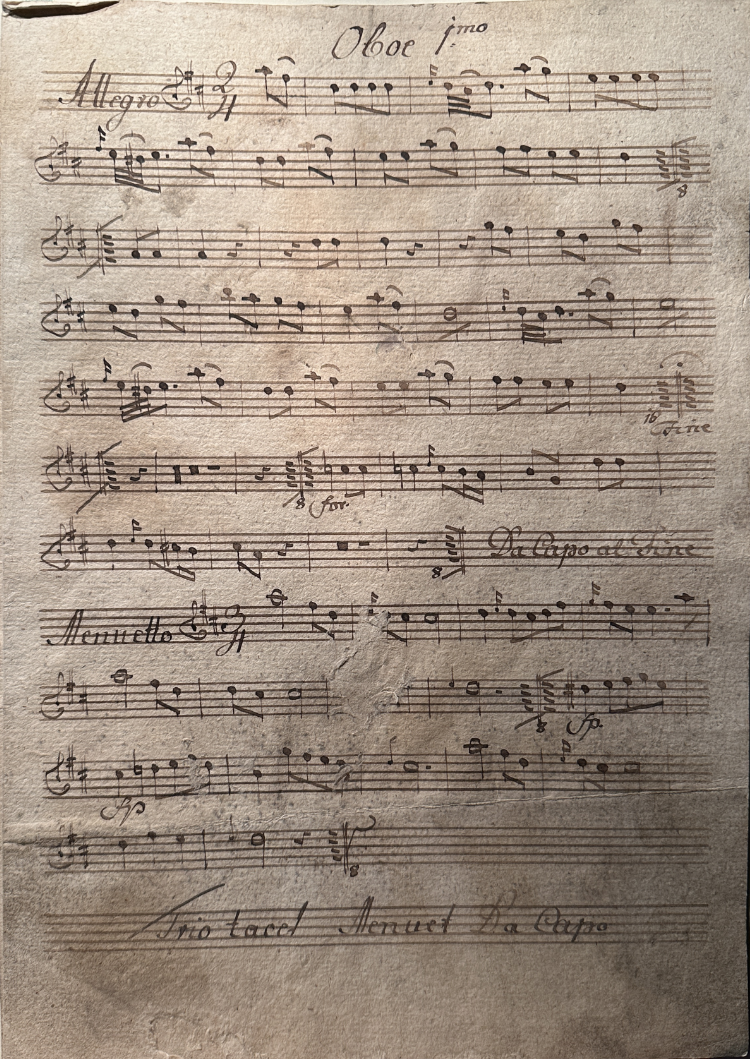 Oboe 1mo
Allegro 2/4
8
16 Fine
8 for:
8 Da Capo al Fine
Menuetto 3/4
8
8
Trio tacet Menuet Da Capo